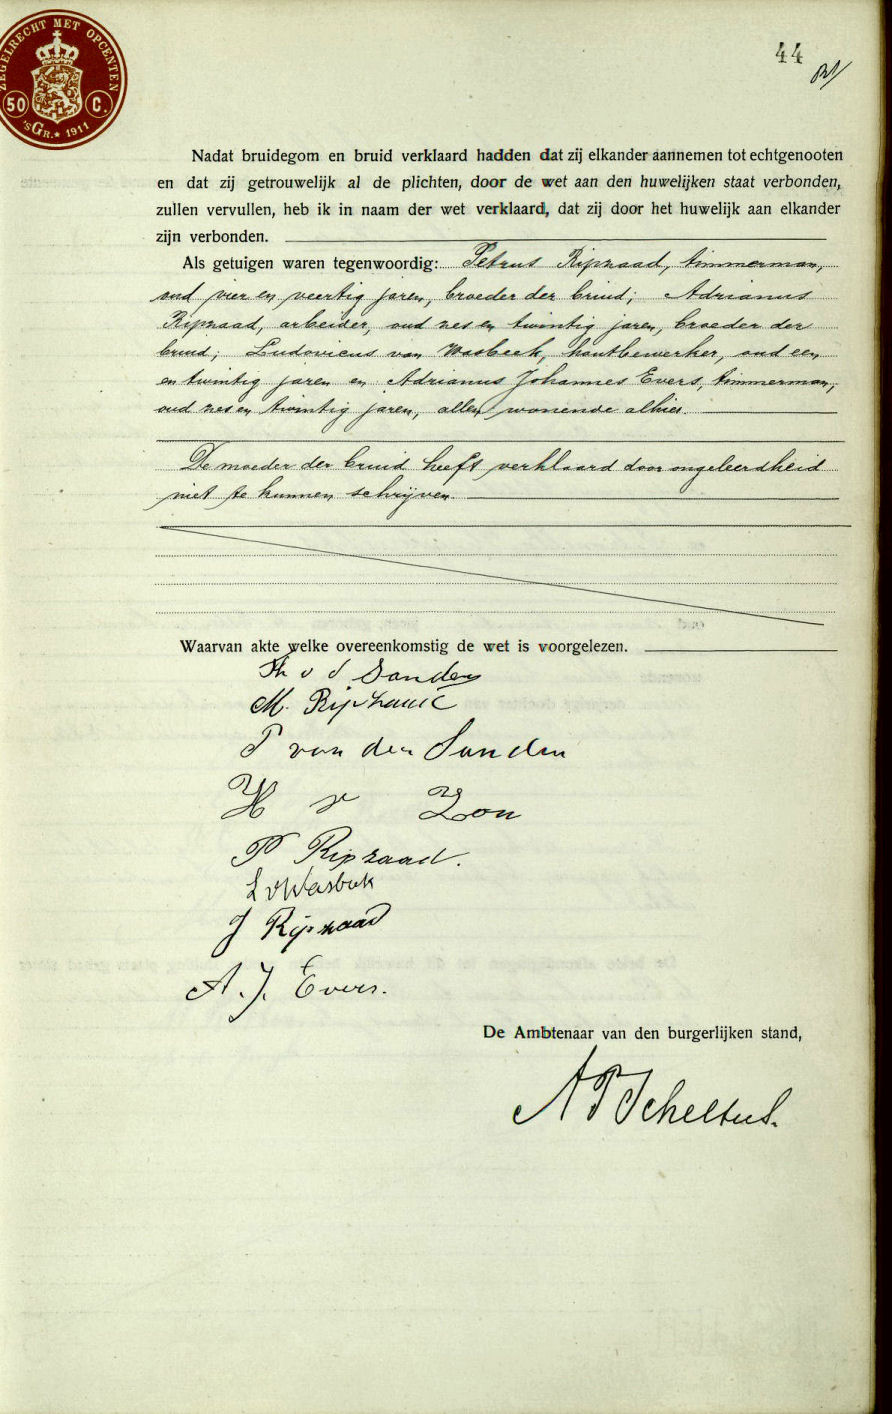 ZEGELRECHT MET OPCENTEN
50 C.
'sGR.★ 1911
44
Nadat bruidegom en bruid verklaard hadden dat zij elkander aannemen tot echtgenooten
en dat zij getrouwelijk al de plichten, door de wet aan den huwelijken staat verbonden,
zullen vervullen, heb ik in naam der wet verklaard, dat zij door het huwelijk aan elkander
zijn verbonden.
Als getuigen waren tegenwoordig: Petrus Ripzaad, timmerman,
oud vier en veertig jaren, broeder der bruid; Adrianus
Ripzaad, arbeider, oud zes en twintig jaren, broeder der
bruid; Ludovicus van Wasbeek, houtbewerker, oud een
en twintig jaren en Adrianus Johannes Evers, timmerman,
oud zes en twintig jaren, allen wonende alhier.
De moeder der bruid heeft verklaard door ongeleerdheid
niet te kunnen schrijven.
Waarvan akte welke overeenkomstig de wet is voorgelezen.
Th v d Sanden
M. Rip
P van den Sanden
H v Zon
P Ripzaad.
L v Wasbeek
J Rijpzaad
A. J. Evers.
De Ambtenaar van den burgerlijken stand,